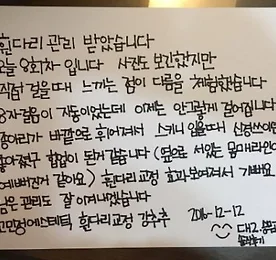 휜다리 관리 받았습니다
오늘 8회차 입니다 사진도 보긴했지만
직접 걸을때 느끼는 점이 다름을 체험했습니다
팔자걸음이 자동이었는데 이제는 안그렇게 걸어집니다
종아리가 바깥으로 휘어져서 스키니 입을때 신경쓰이
좋아졌구 힙업이 된거같습니다 (옆으로 서있는 몸매라인이
예뻐진거 같아요) 휜다리교정 효과보여져서 기뻐요
남은 관리도 잘 이겨내겠습니다
고민정에스테틱 휜다리교정 강추추 2016-12-12